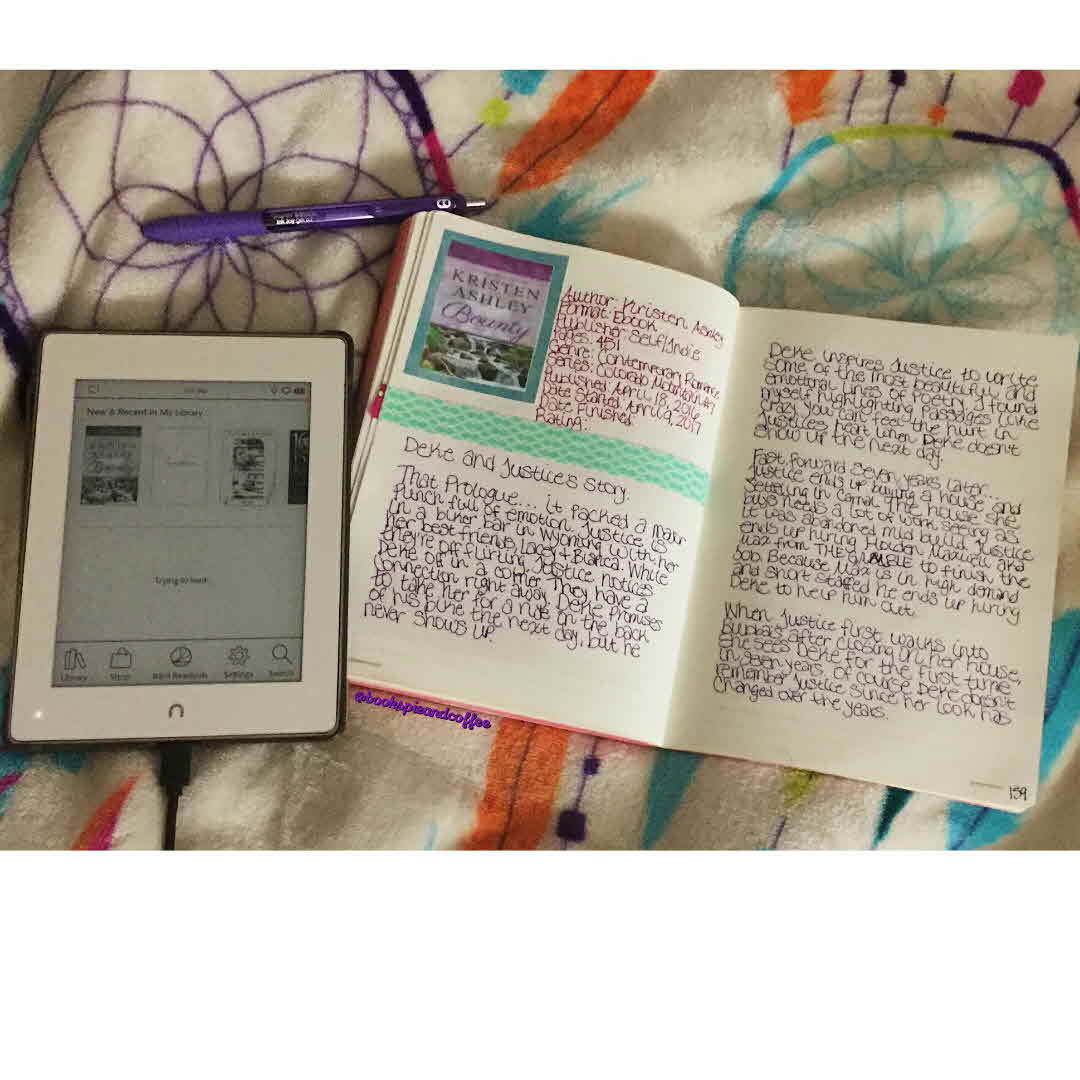 New & Recent in My Library
Trying to load
Library
Shop
B&N Readouts
Settings
Search
@bookspieandcoffee
KRISTEN
ASHLEY
Bounty
Author: Kristen Ashley
Format: Ebook
Publisher: Self/Indie
Pages: 451
Genre: Contemporary Romance
Series: Colorado Mountain #7
Published: April 18, 2016
Date Started: April 9, 2017
Date Finished:
Rating:
Deke and Justice's story.
That Prologue... it packed a major
punch full of emotion. Justice is
in a biker bar in Wyoming with her
her best friends, Lacey + Bianca. While
they're off flirting Justice notices
Deke off in a corner. They have a
connection right away. Deke promises
to take her for a ride on the back
of his bike the next day, but he
never shows up.
Deke inspires Justice to write
some of the most beautiful and
emotional lines of poetry. I found
myself highlighting passages like
crazy. You can feel the hurt in
Justice's heart when Deke doesn't
show up the next day.
Fast forward seven years later... and
Justice ends up buying a house and
settling in Carnal. The house she
buys needs a lot of work seeing as
it was abandoned mid build. Justice
ends up hiring Holden Maxwell aka
Max from THE GAMBLE to finish the
job. Because Max is in high demand
and short staffed he ends up hiring
Deke to help him out.
When Justice first walks into
Bubba's after closing on her house,
she sees Deke for the first time
in seven years. Of course Deke doesn't
remember Justice since her look has
changed over the years.
159